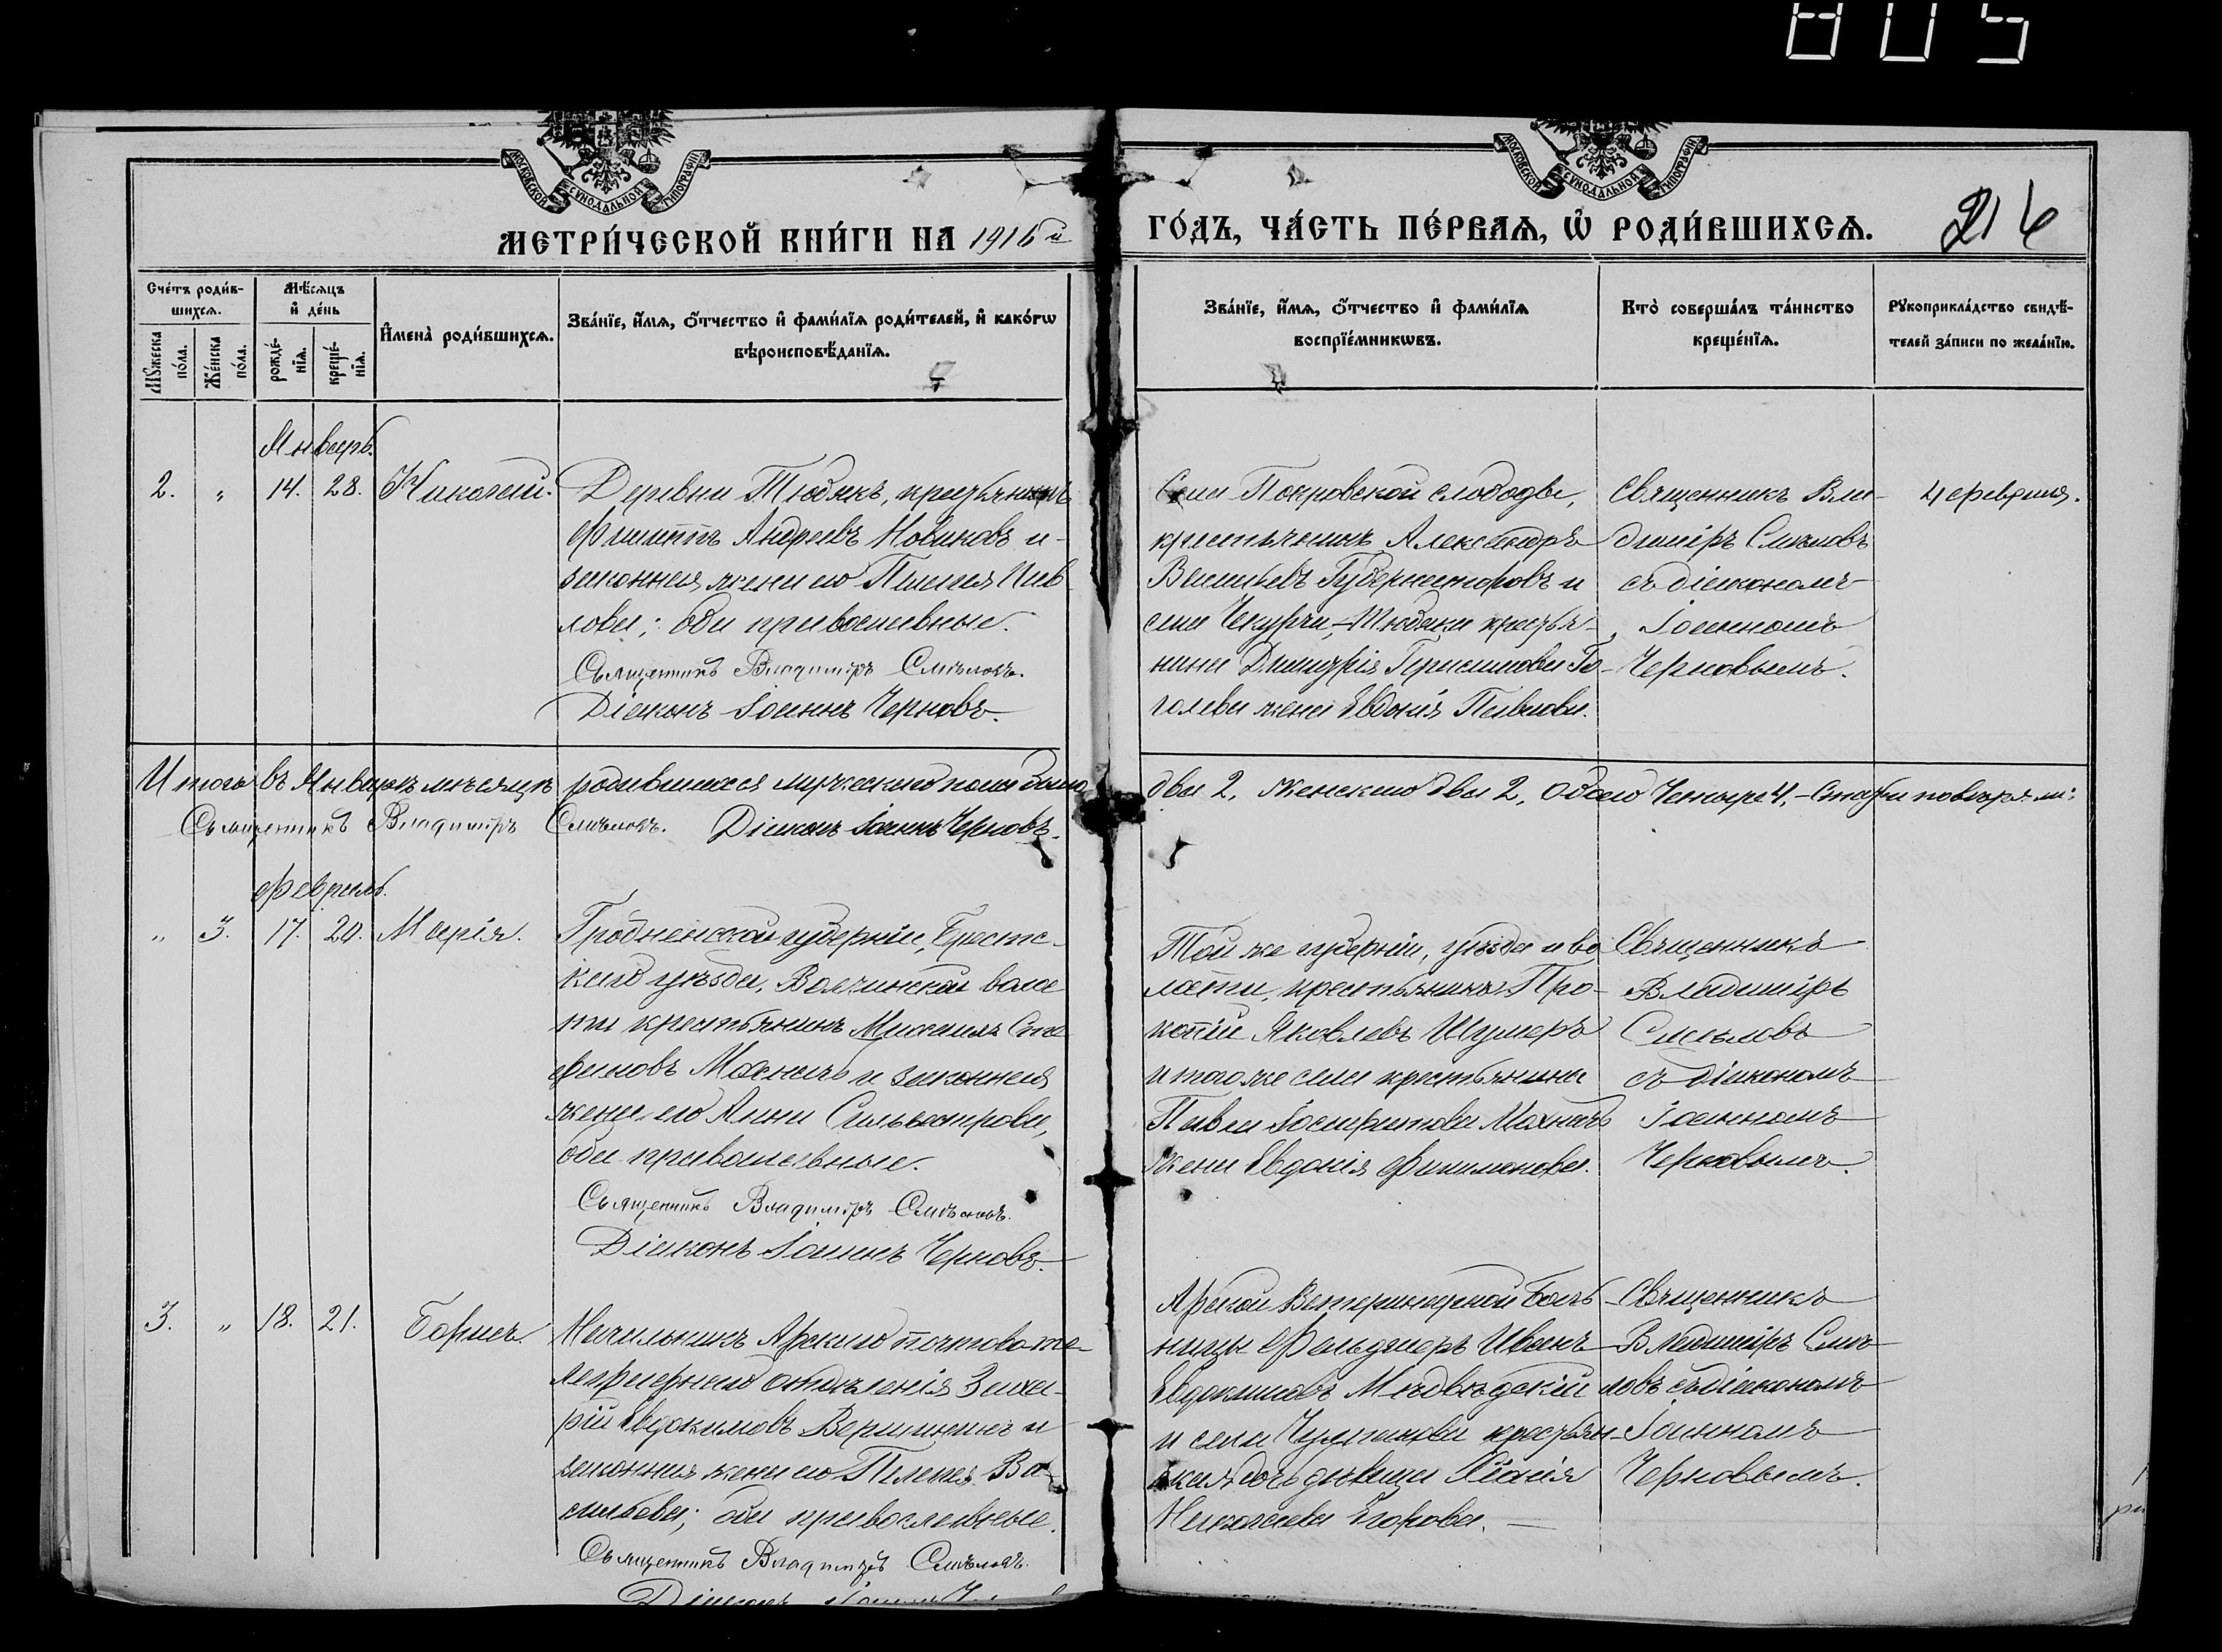 805
МОСКОВСКОЙ СѴНОДАЛЬНОЙ ТИПОГРАФІИ
МОСКОВСКОЙ СѴНОДАЛЬНОЙ ТИПОГРАФІИ
МЕТРИ́ЧЕСКОЙ КНИ́ГИ НА 1916й ГО́ДЪ, ЧА́СТЬ ПЕ́РВАѦ, Ѡ҆ РОДИ́ВШИХСѦ.
216
Сче́тъ роди́в-
шихсѧ.
Мꙋжеска по́ла.
Же́нска по́ла.
Мѣ́сѧцъ
и҆ де́нь
рожде́-нїѧ.
креще́-нїѧ.
И҆мена̀ роди́вшихсѧ.
Зва́нїе, и҆́мѧ, ѻ҆́тчество и҆ фами́лїѧ роди́телей, и҆ како́гѡ
вѣроисповѣ́данїѧ.
Зва́нїе, и҆́мѧ, ѻ҆́тчество и҆ фами́лїѧ
воспрїе́мникѡвъ.
Кто̀ соверша́лъ та́инство
креще́нїѧ.
Рꙋкоприкла́дство свидѣ́-
телей за́писи по жела́нїю.
Январь.
2. " 14. 28. Николай.
Деревни Тюбякъ, крестьянинъ
Филиппъ Андреевъ Новиковъ и
законная жена его Пав-
лова; оба православные.
Священникъ Владиміръ Смѣловъ.
Діаконъ Іоаннъ Черновъ.
Села Покровской слободы,
крестьянинъ Александръ
Васильевъ Губернаторовъ и
села Чекурчи-Тюбяки крестья-
нина Димитрія Герасимова Го-
голева жена Евдокія Павлова.
Священникъ Вла-
диміръ Смѣловъ
съ діакономъ
Іоанномъ
Черновымъ.
4 февраля.
Итого въ Январѣ мѣсяцѣ родившихся мужескаго пола было два 2, женскаго два 2, обоего Четыре 4.
Священникъ Владиміръ Смѣловъ. Діаконъ Іоаннъ Черновъ.
Февраль.
" 3. 17. 20. Марія.
Гродненской губерніи, Брестс-
каго уѣзда, волос-
ти крестьянинъ Михаилъ Сте-
фановъ Махначъ и законная
жена его Анна Сильвестрова,
оба православные.
Священникъ Владиміръ Смѣловъ.
Діаконъ Іоаннъ Черновъ.
Той же губерніи, уѣзда и во-
лости, крестьянинъ Про-
копій Яковлевъ Шумеръ
и того же села крестьянина
Павла Іосифатова Махначъ
жена Евдокія Филимонова.
Священникъ
Владиміръ
Смѣловъ
съ діакономъ
Іоанномъ
Черновымъ.
3. " 18. 21. Борисъ.
Начальникъ Арскаго почтово-те-
леграфнаго отдѣленія Заха-
рій Евдокимовъ Вершининъ и
законная жена его Пелагея Ва-
сильева; оба православные.
Священникъ Владиміръ Смѣловъ.
Діаконъ Іоаннъ
Арской Ветеринарной Боль-
ницы Фельдшеръ Иванъ
Евдокимовъ Медвѣдскій
и села крестьян-
ская дочь дѣвица
Николаева Егорова.
Священникъ
Владиміръ Смѣ-
ловъ съ діакономъ
Іоанномъ
Черновымъ.